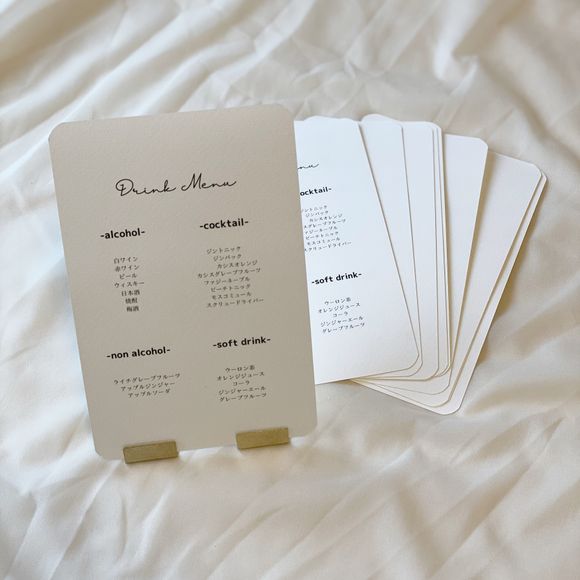 Drink Menu
-alcohol-
白ワイン
赤ワイン
ビール
ウィスキー
日本酒
焼酎
梅酒
-cocktail-
ジントニック
ジンバック
カシスオレンジ
カシスグレープフルーツ
ファジーネーブル
ピーチトニック
モスコミュール
スクリュードライバー
-non alcohol-
ライチグレープフルーツ
アップルジンジャー
アップルソーダ
-soft drink-
ウーロン茶
オレンジジュース
コーラ
ジンジャーエール
グレープフルーツ
nu
ktail-
ジントニック
ジンバック
カシスオレンジ
グレープフルーツ
ファジーネーブル
ピーチトニック
モスコミュール
スクリュードライバー
-soft drink-
ウーロン茶
オレンジジュース
コーラ
ジンジャーエール
グレープフルーツ